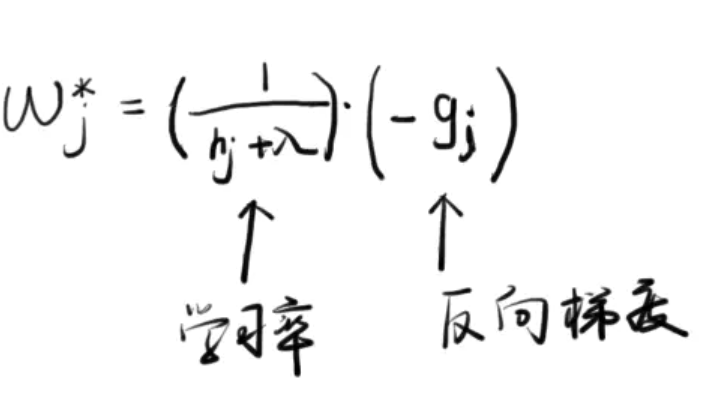 w_j^* = (1/(h_j+λ))·(-g_j)
学习率 反向梯度